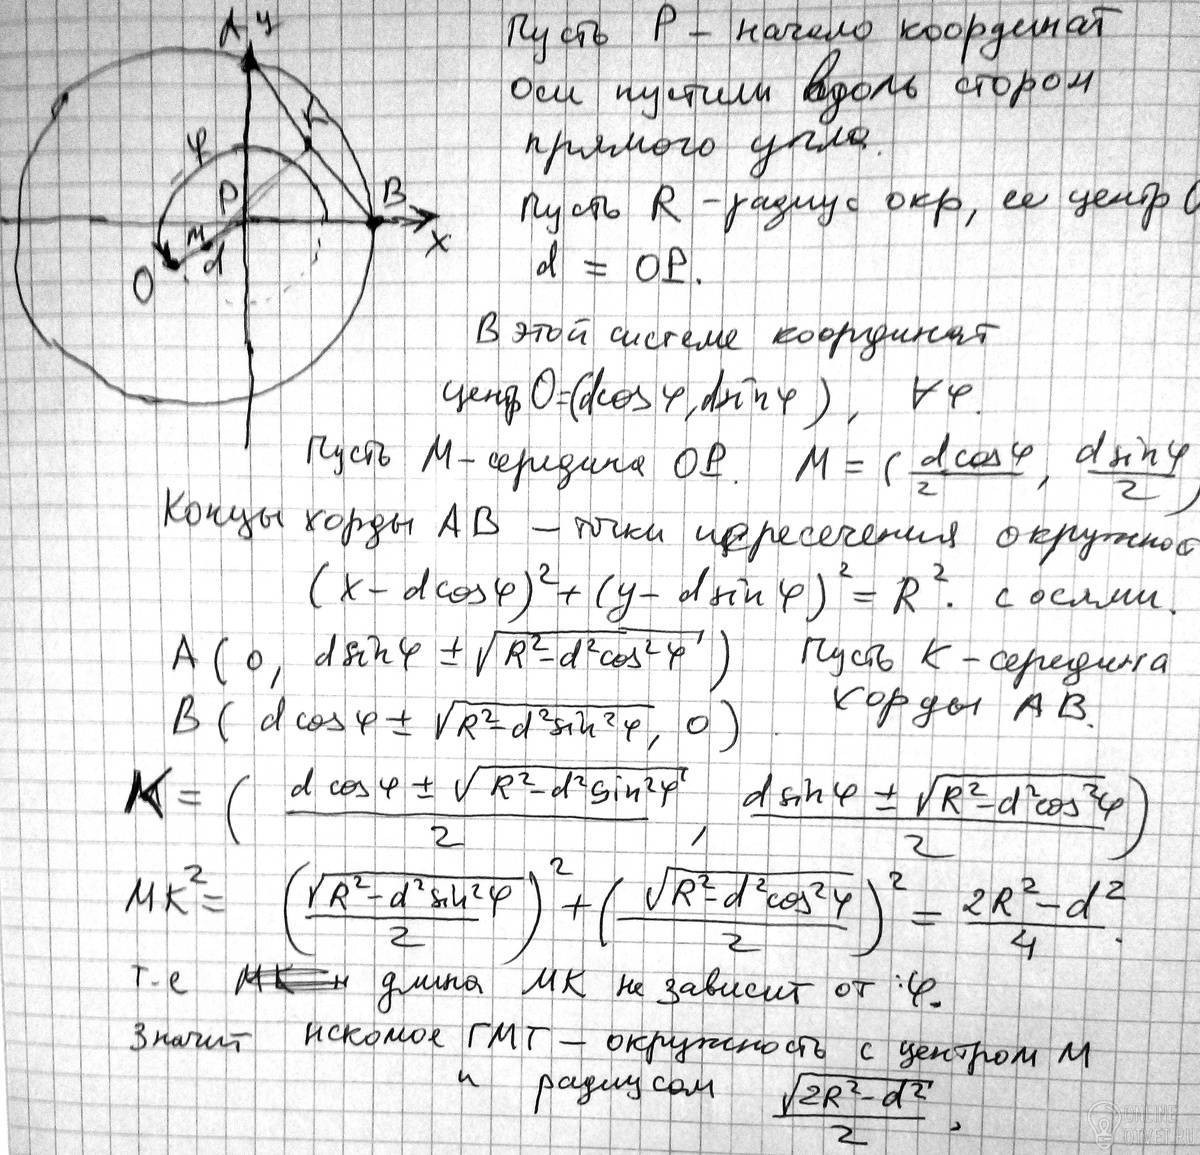 A y
φ
K
P
B
X
M
d
O
Пусть P – начало координат
оси пустили вдоль сторон
прямого угла.
Пусть R – радиус окр, ее центр O
d = OP.
В этой системе координат
центр O=(dcosφ, dsinφ), ∀φ.
Пусть M – середина OP. M = (dcosφ/2, dsinφ/2)
Концы хорды AB – точки пересечения окружнос
(x – dcosφ)² + (y – dsinφ)² = R². с осями.
A(0, dsinφ ± √(R²–d²cos²φ)) Пусть K – середина
хорды AB.
B(dcosφ ± √(R²–d²sin²φ), 0).
K = ((dcosφ ± √(R²–d²sin²φ))/2, (dsinφ ± √(R²–d²cos²φ))/2)
MK² = (√(R²–d²sin²φ)/2)² + (√(R²–d²cos²φ)/2)² = (2R²–d²)/4.
т.е длина MK не зависит от φ.
Значит искомое ГМТ – окружность с центром M
и радиусом √(2R²–d²)/2,
ONLINE
OTVET.RU